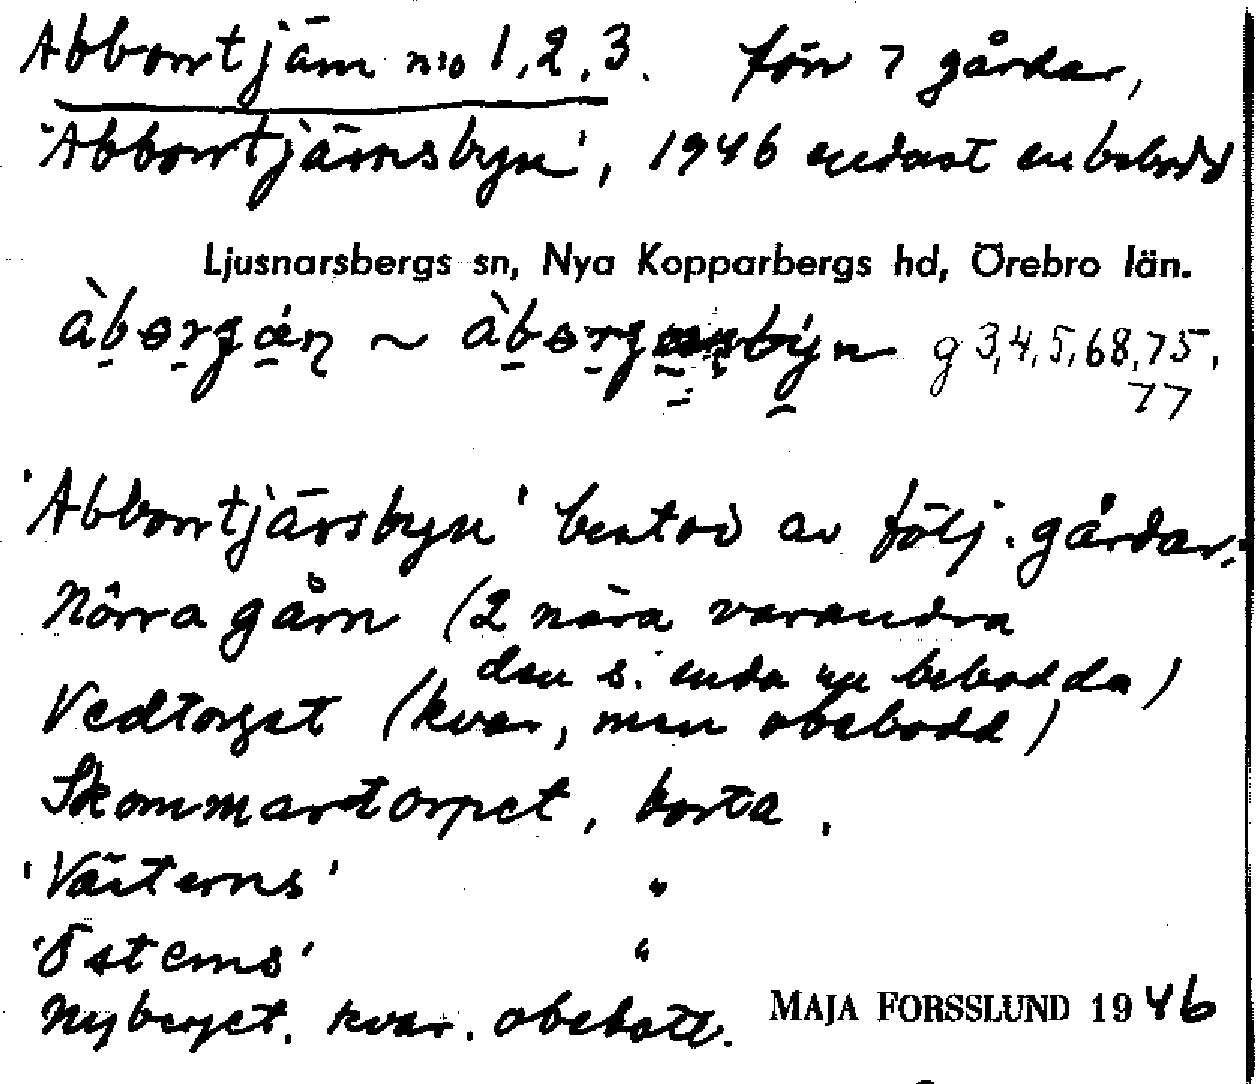 Abborrtjärn n:o 1, 2, 3. förr 7 gårdar,
'Abborrtjärnsbyn', 1946 endast en bebodd
Ljusnarsbergs sn, Nya Kopparbergs hd, Örebro län.
g 3, 4, 5, 68, 75,
77
'Abborrtjärsbyn' bestod av följ. gårdar:
Nôrra gårn (2 nära varandra
den s. enda nu bebodda)
Vedtorget (kvar, men obebodd)
Skommartorpet, borta.
'Västerns' "
'Österns' "
Nyberget. kvar. obebott.
MAJA FORSSLUND 1946